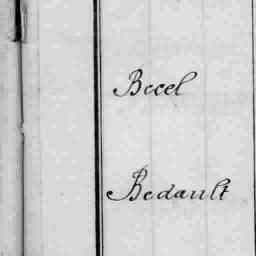 Becel
Bedault